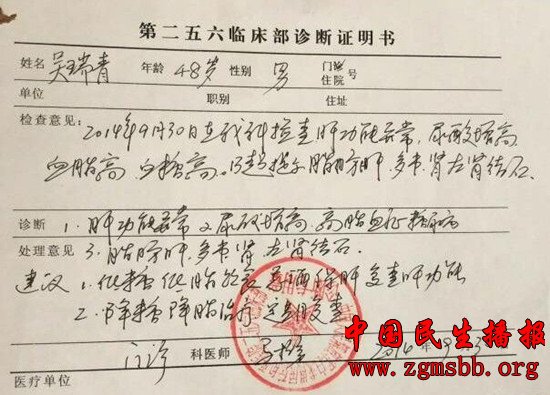 第二五六临床部诊断证明书
姓名 吴瑞青 年龄 48岁 性别 男 门诊 住院 号
单位 职别 住址
检查意见: 2014年9月30日在我科检查肝功能异常,尿酸增高
血脂高 血糖高。B超提示脂肪肝,多
肾左肾结石.
诊断 1.肝功能异常 2 尿酸增高 高脂血症 糖尿病
处理意见 3.脂肪肝,多
肾,左肾结石.
建议 1.低糖低脂饮食 戒酒 保肝 复查肝功能
2.降糖降脂治疗 定期复查
门诊 科医师
医疗单位
中国民生播报
www.zgmsbb.org